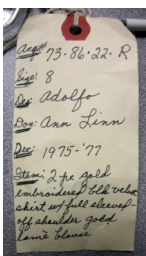 Acq# 73-86-22-R
Size: 8
Des: Adolfo
Don: Ann Linn
Dec: 1975-'77
Item: 2 pc gold
embroidered blk velvet
skirt w/ full sleeved-
off shoulder gold
lamé blouse